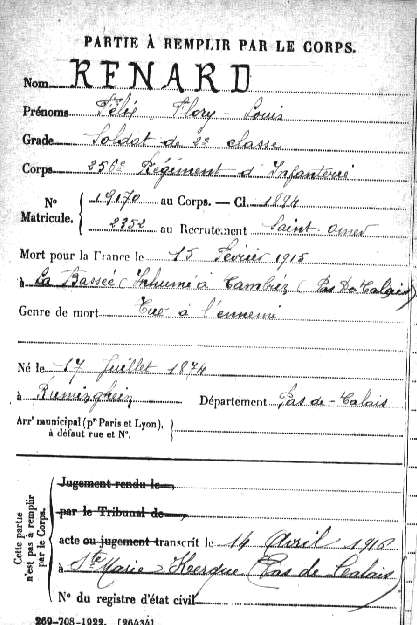 PARTIE À REMPLIR PAR LE CORPS.
Nom RENARD
Prénoms Félix Flory Louis
Grade Soldat de 2e classe
Corps 256e Régiment d'Infanterie
N° Matricule. { 19170 au Corps. — Cl. 1894
2352 au Recrutement Saint Omer
Mort pour la France le 15 Février 1915
à La Bassée (Inhumé à Cambrin (Pas De Calais)
Genre de mort Tué à l'ennemi
Né le 17 Juillet 1874
à Ruminghem Département Pas de-Calais
Arrt municipal (pr Paris et Lyon),
à défaut rue et N°.
Cette partie n'est pas à remplir par le Corps.
Jugement rendu le
par le Tribunal de
acte ou jugement transcrit le 14 Avril 1916
à Ste Marie-Kerque (Pas de Calais)
N° du registre d'état civil
269-708-1922. [26434]